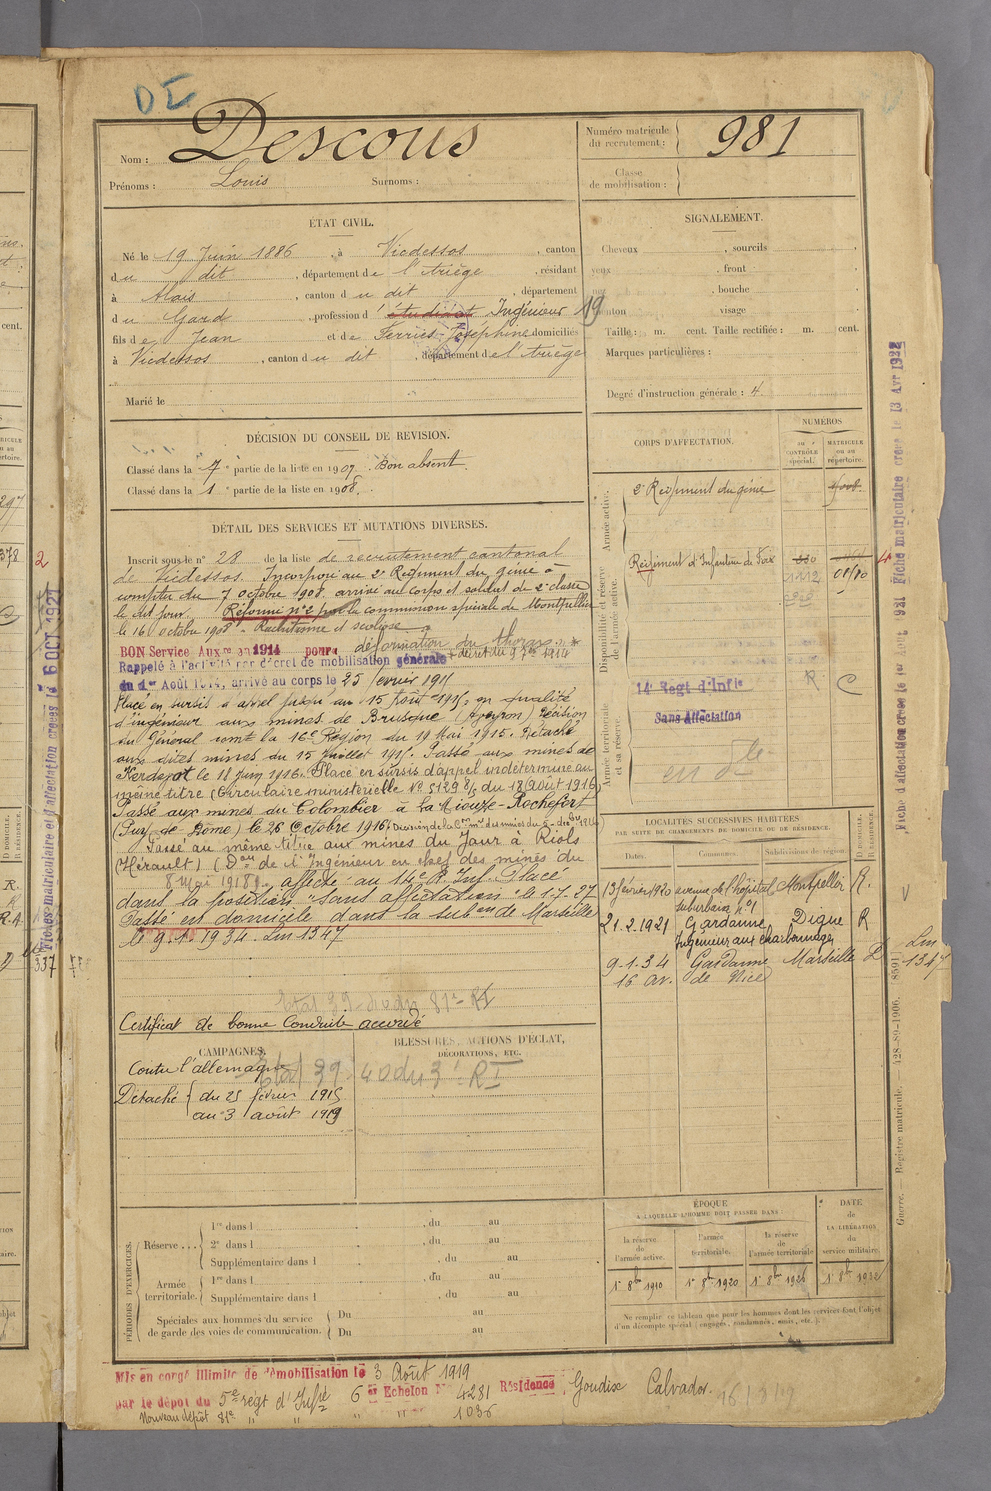 DE
Nom : Descous
Prénoms : Louis Surnoms :
Numéro matricule du recrutement : 981
Classe de mobilisation :
ÉTAT CIVIL.
Né le 19 Juin 1886, à Vicdessos, canton
du dit, département de l'Ariège, résidant
à Alais, canton du dit, département
du Gard, profession d'étudiant Ingénieur
fils de Jean et de Ferriès Joséphine domiciliés
à Vicdessos, canton du dit, département de l'Ariège
Marié le
SIGNALEMENT.
Cheveux , sourcils
yeux , front
nez , bouche
19
menton visage
Taille : m. cent. Taille rectifiée : m. cent.
Marques particulières :
Degré d'instruction générale : 4.
DÉCISION DU CONSEIL DE REVISION.
Classé dans la 7e partie de la liste en 1907. Bon absent.
Classé dans la 1 partie de la liste en 1908.
DÉTAIL DES SERVICES ET MUTATIONS DIVERSES.
Inscrit sous le n° 28 de la liste de recrutement cantonal
de Vicdessos. Incorporé au 2e Régiment du génie à
compter du 7 octobre 1908, arrivé au corps et soldat de 2e classe
le dit jour. Réformé n°2 par la commission spéciale de Montpellier
le 16 octobre 1908 - Rachitisme et scoliose
déformation du thorax
BON Service Auxre en 1914 pour décret du 9 7bre 1914
Rappelé à l'activité par décret de mobilisation générale
du 1er Août 1914, arrivé au corps le 25 février 1915
Placé en sursis d'appel jusqu'au 15 Août 1915, en qualité
d'ingénieur aux mines de Brusque (Aveyron) Décision
du Général comt la 16e Région du 19 Mai 1915. Détaché
aux dites mines du 15 Juillet 1915. Passé aux mines de
le 11 Juin 1916. Placé en sursis d'appel indéterminé au
même titre (Circulaire ministérielle N° 5129 du 18 Août 1916)
Passé aux mines du Colombier à la Miouze-Rochefort
(Puy-de-Dôme) le 26 Octobre 1916
Passé au même titre aux mines du Jaur à Riols
(Hérault) (Don de l'Ingénieur en chef des mines du
8 Mai 1918). affecté au 14e R. Inf. Placé
dans la position "Sans affectation" le 1-7-27
Passé est domicile dans la subon de Marseille
le 9.1.1934. Lm 1347
Certificat de bonne Conduite accordé
CORPS D'AFFECTATION.
NUMÉROS
AU CONTRÔLE spécial.
MATRICULE ou au répertoire.
Armée active.
2e Régiment du génie
Disponibilité et réserve de l'armée active.
Régiment d'Infanterie de Foix
1112
R
C
14e Regt d'Infie
Sans Affectation
Armée territoriale et sa réserve.
LOCALITÉS SUCCESSIVES HABITÉES
PAR SUITE DE CHANGEMENTS DE DOMICILE OU DE RÉSIDENCE.
Dates. Communes. Subdivisions de région. D DOMICILE. R RÉSIDENCE.
13 février 1920 avenue de l'hôpital suburbain n°1 Montpellier R.
21-2-1921 Gardanne Digne R
Ingénieur aux charbonnages
9-1-34 Gardanne Marseille D
16 av. de Nice
Lm 1347
CAMPAGNES.
Contre l'allemagne
Détaché { du 25 février 1915
au 3 août 1919
BLESSURES, ACTIONS D'ÉCLAT,
DÉCORATIONS, ETC.
Etat 39-40 du 81e RI
Etat 39-40 du 3e RI
PÉRIODES D'EXERCICES.
Réserve...
1re dans l , du au
2e dans l , du au
Supplémentaire dans l , du au
Armée territoriale.
1re dans l , du au
Supplémentaire dans l , du au
Spéciales aux hommes du service de garde des voies de communication.
Du au
Du au
ÉPOQUE
À LAQUELLE L'HOMME DOIT PASSER DANS :
la réserve de l'armée active. l'armée territoriale. la réserve de l'armée territoriale
DATE de LA LIBÉRATION du service militaire.
1er 8bre 1910 1er 8bre 1920 1er 8bre 1926 1er 8bre 1932
Ne remplir ce tableau que pour les hommes dont les services font l'objet
d'un décompte spécial (engagés, condamnés, omis, etc.).
Mis en congé illimité de démobilisation le 3 Août 1919
par le dépôt du 5e régt d'Infie 6 er Echelon N° 4281 Résidence, Calvados.
Nouveau dépôt 81e " " " 1036
Guerre. — Registre matricule. — 428-89-1906. [8591]
Fiche d'affectation créée le 1er Août 1921 Fiche matriculaire créée le 13 Avr 1922
Fiches matriculaire et d'affectation créées le 6 OCT 1921
337